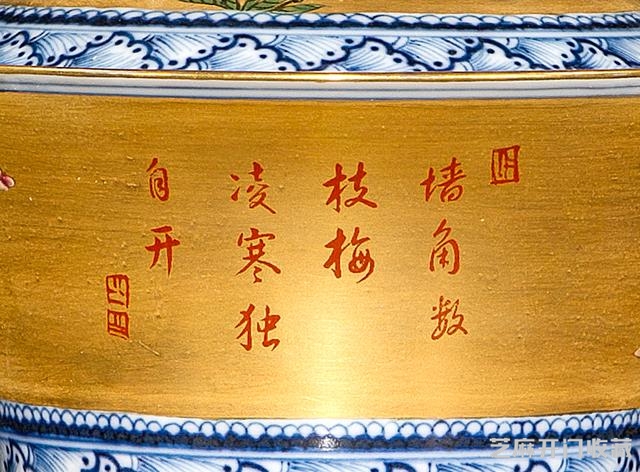 墙角数
枝梅
凌寒独
自开
芝麻开门收藏